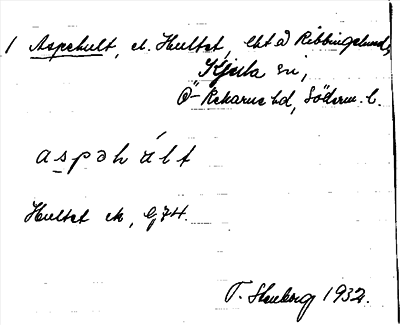 1 Aspehult, el. Hultet, lht å Ribbingelund,
Kjula sn,
Ö-Rekarne hd, Söderm. l.
aspəhult
Hultet ek, G74.
T. Stenberg 1932.